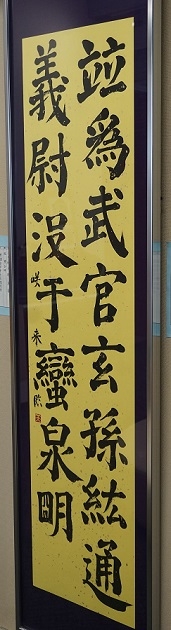 竝爲武官玄孫紘通
義尉没于蠻泉明
咲来臨